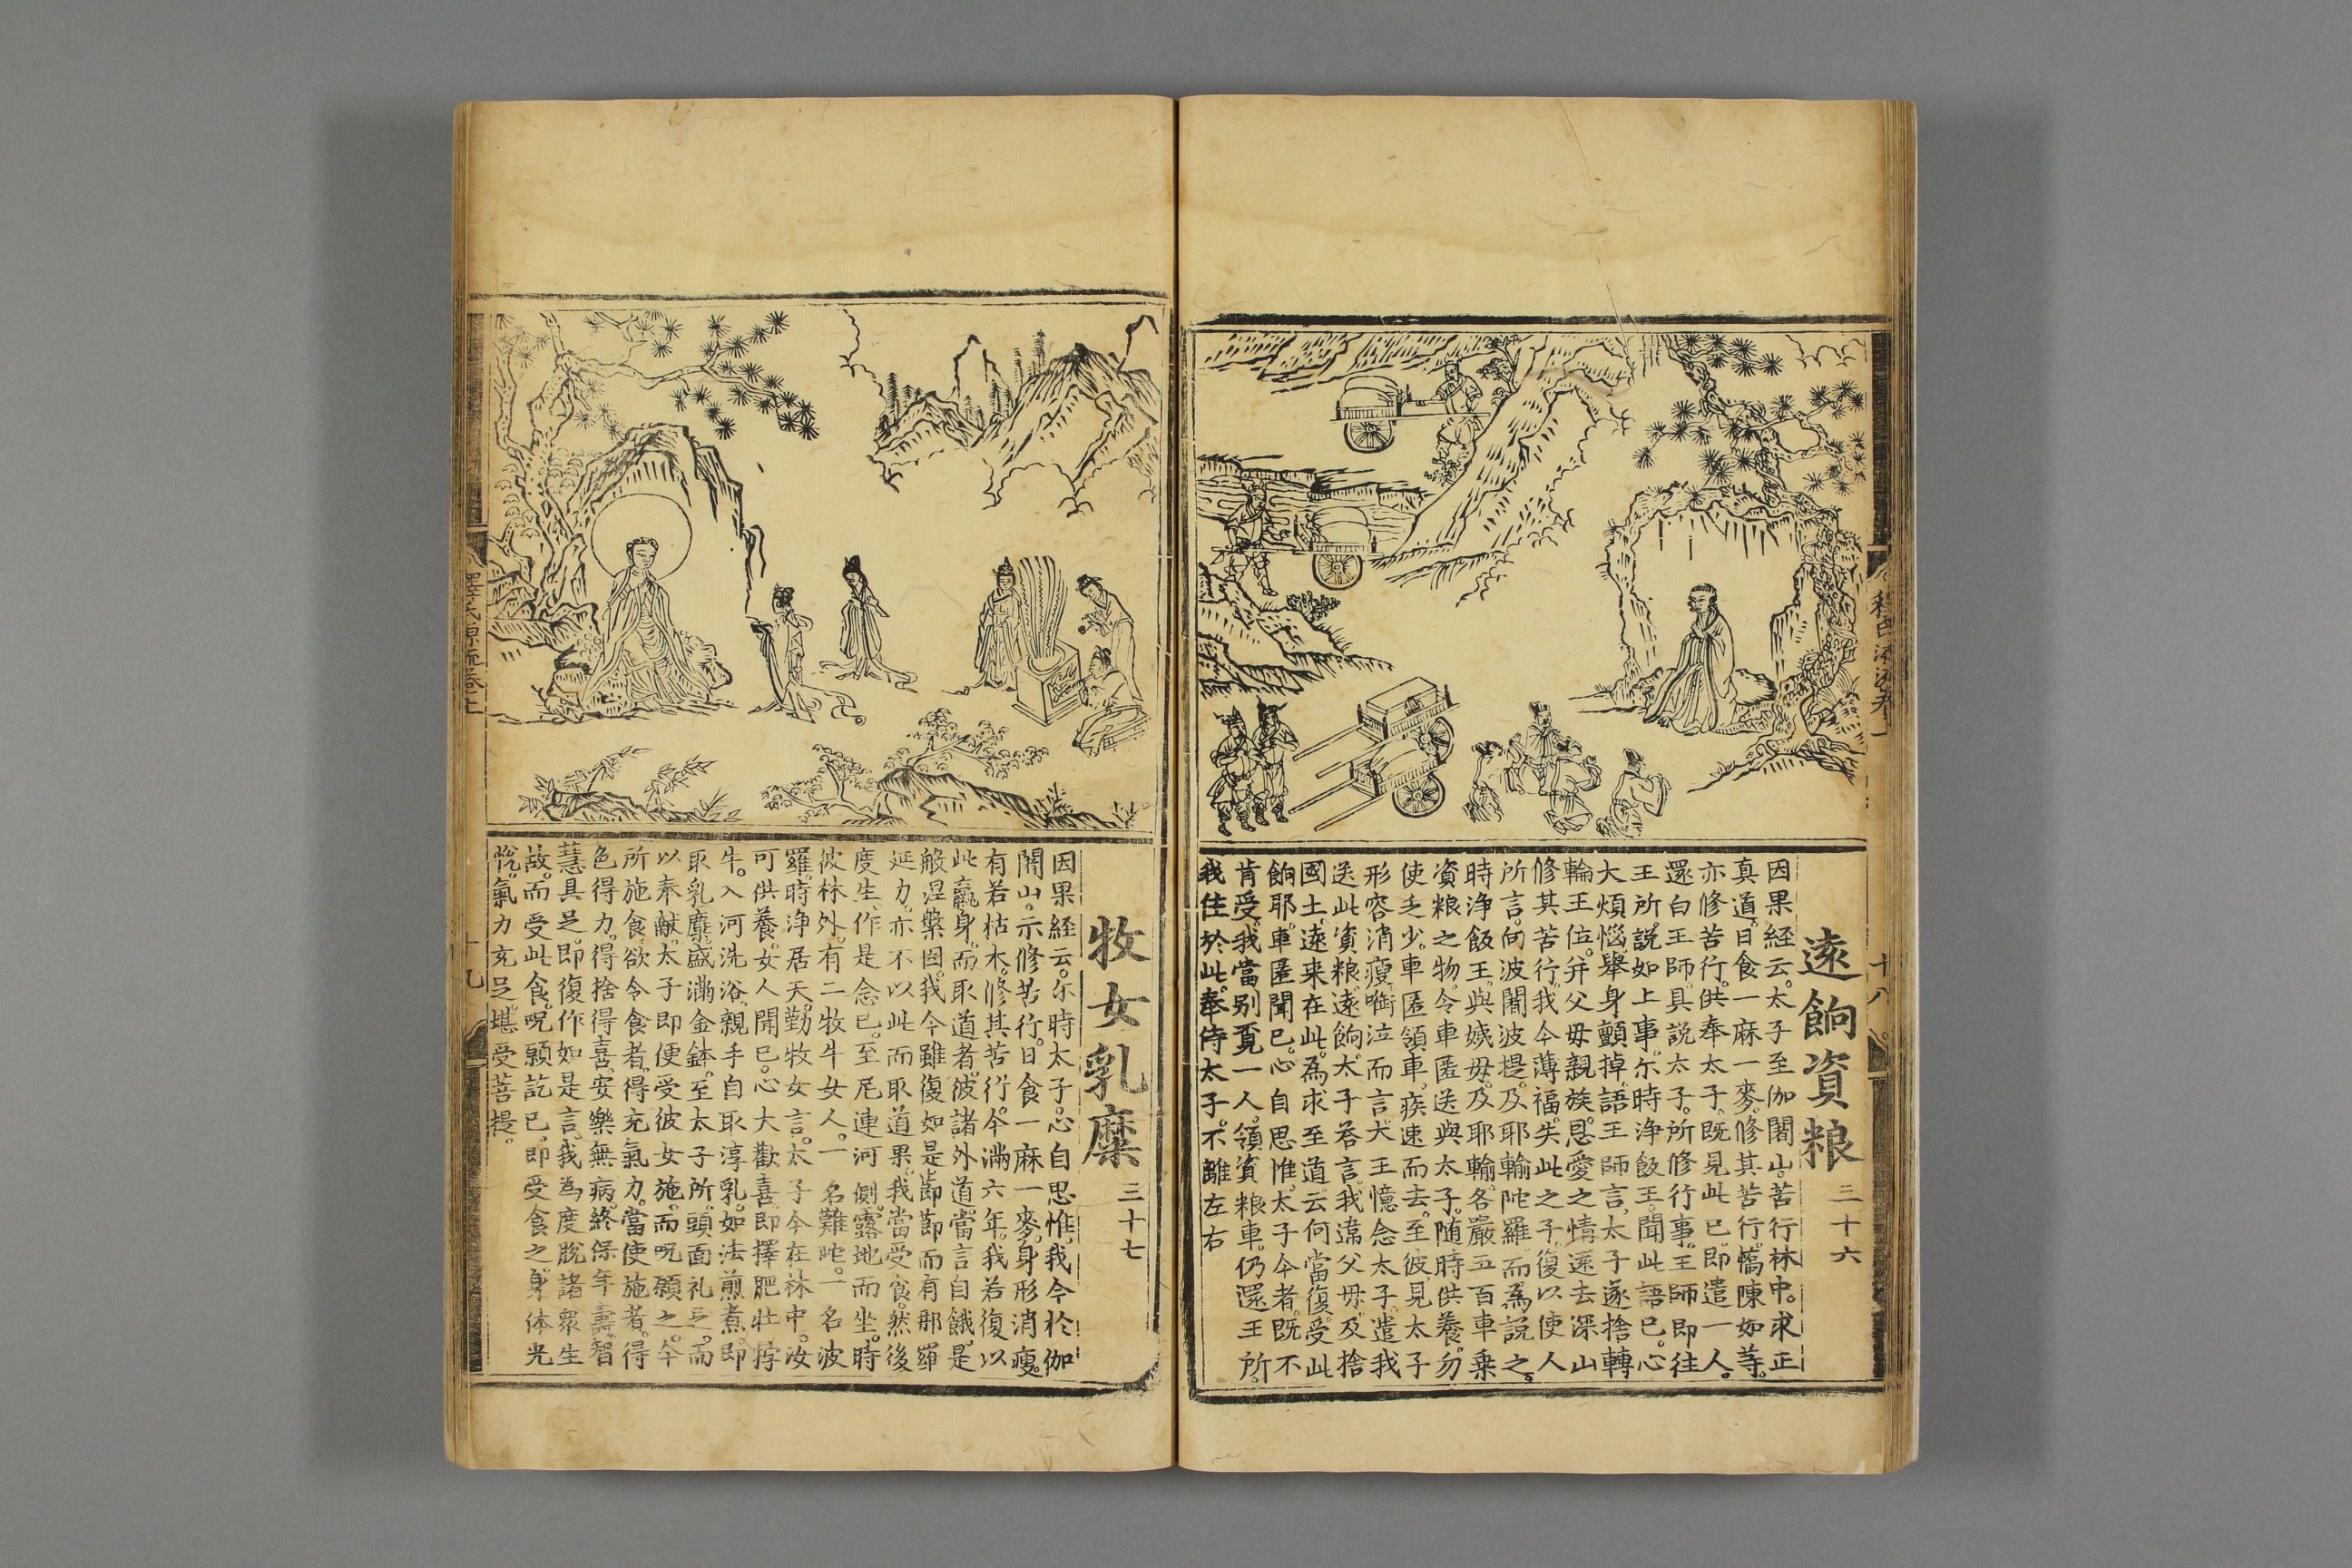 遠餉資粮 三十六
因果経云。太子至伽闍山。苦行林中。求正
真道。日食一麻一麥。修其苦行。憍陳如等。
亦修苦行。供奉太子。既見此已。即遣一人。
還白王師。具説太子。所修行事。王師即往
王所。説如上事。尓時浄飯王。聞此語已。心
大煩惱。舉身顫掉。語王師言。太子遂捨轉
輪王位。并父母親族。恩愛之情。遂去深山
修其苦行。我今薄福。失此之子。復以使人
所言。向波闍波提。及耶輸陁羅。而爲説之。
時浄飯王。與姨母。及耶輸。各嚴五百車乗
資粮之物。令車匿送與太子。随時供養。勿
使乏少。車匿領車。疾速而去。至彼見太子
形容消瘦。啣泣而言。大王憶念太子。遣我
送此資粮。遠餉。太子荅言。我違父母。及捨
國土。遠来在此。爲求至道。云何當復。受此
餉耶。車匿聞已。心自思惟。太子今者。既不
肯受。我當别覓一人。領資粮車。仍還王所。
我住於此。奉侍太子。不離左右
十八
牧女乳糜 三十七
因果経云。尓時太子。心自思惟。我今於伽
闍山。示修苦行。日食一麻一麥。身形消瘦。
有若枯木。修其苦行。今满六年。我若復以
此羸身。而取道者。彼諸外道。當言自餓。是
般涅槃因。我今雖復如是。節節而有那羅
延力。亦不以此而取道果。我當受食。然後
度生。作是念已。至尼連河側。露地而坐。時
彼林外。有二牧牛女人。一名難陁。一名波
羅。時浄居天。勤牧女言。太子今在林中。汝
可供養。女人聞已。心大歡喜。即擇肥壮牸
牛。入河洗浴。親手自取淳乳。如法煎煮。即
取乳糜。盛满金鉢。至太子所。頭面礼足。而
以奉献。太子即便受彼女施。而呪願之。今
所施食。欲令食者。得充氣力。當使施者。得
色得力。得捨得喜。安樂無病。終保年壽。智
慧具足。即復作如是言。我為度脱諸衆生
故。而受此食。呪願訖已。即受食之。身体光
悦。氣力充足。堪受菩提。